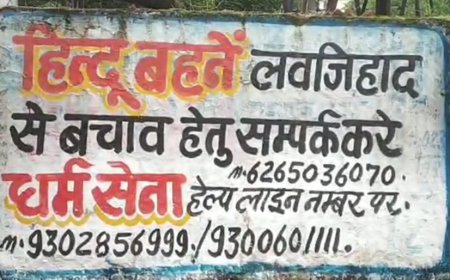 हिन्दू बहनें लवजिहाद
से बचाव हेतु सम्पर्क करे
m. 6265036070.
धर्म सेना हेल्प लाइन नम्बर पर.
m. 9302856999./9300601111.